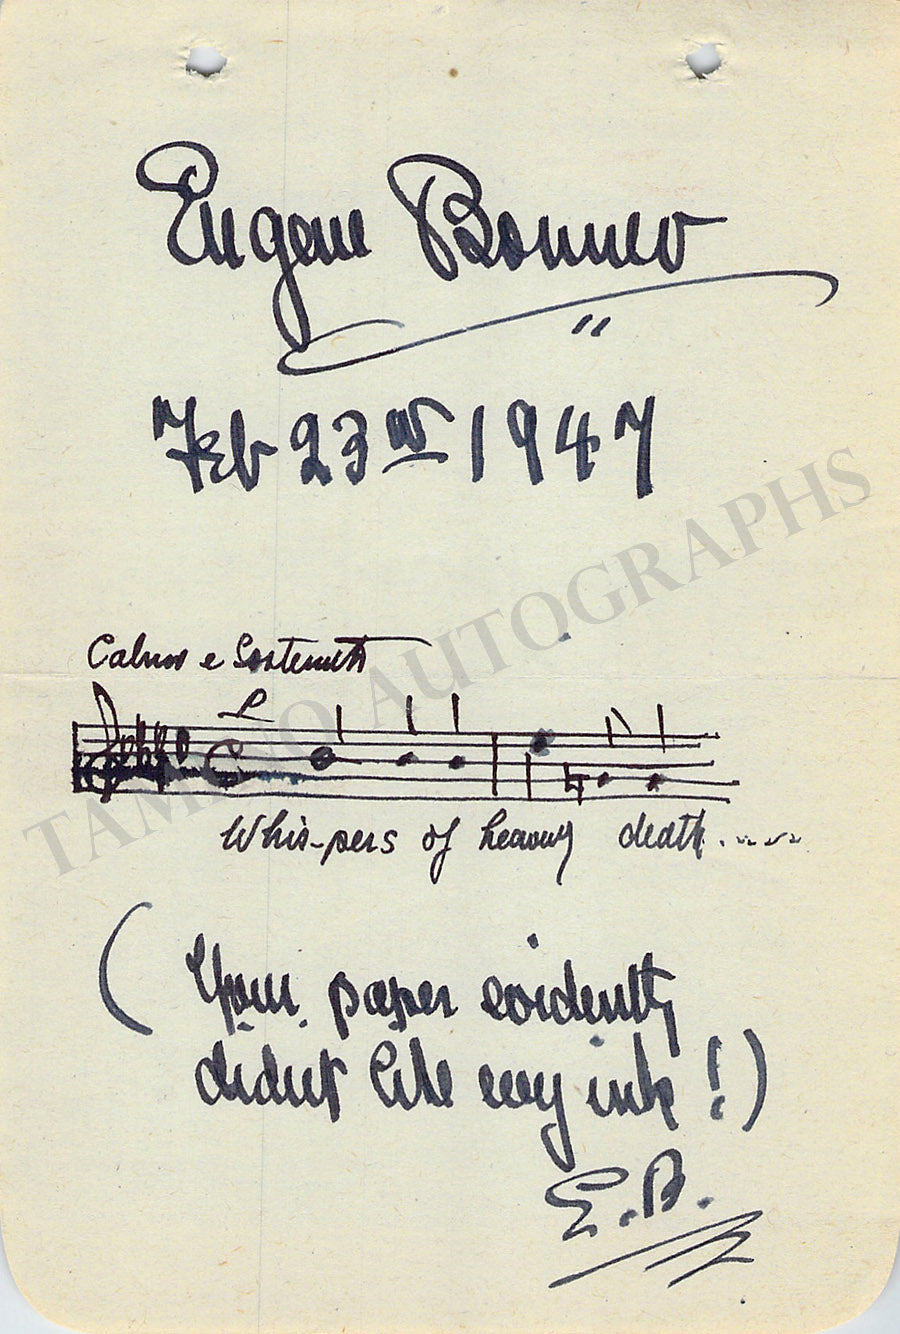 Eugene Bonner
Feb 23rd 1947
Calmo e Sostenuto
Whis-pers of heavenly death.....
(Your paper evidently
didn't like my ink!)
E.B.
TAMINO AUTOGRAPHS